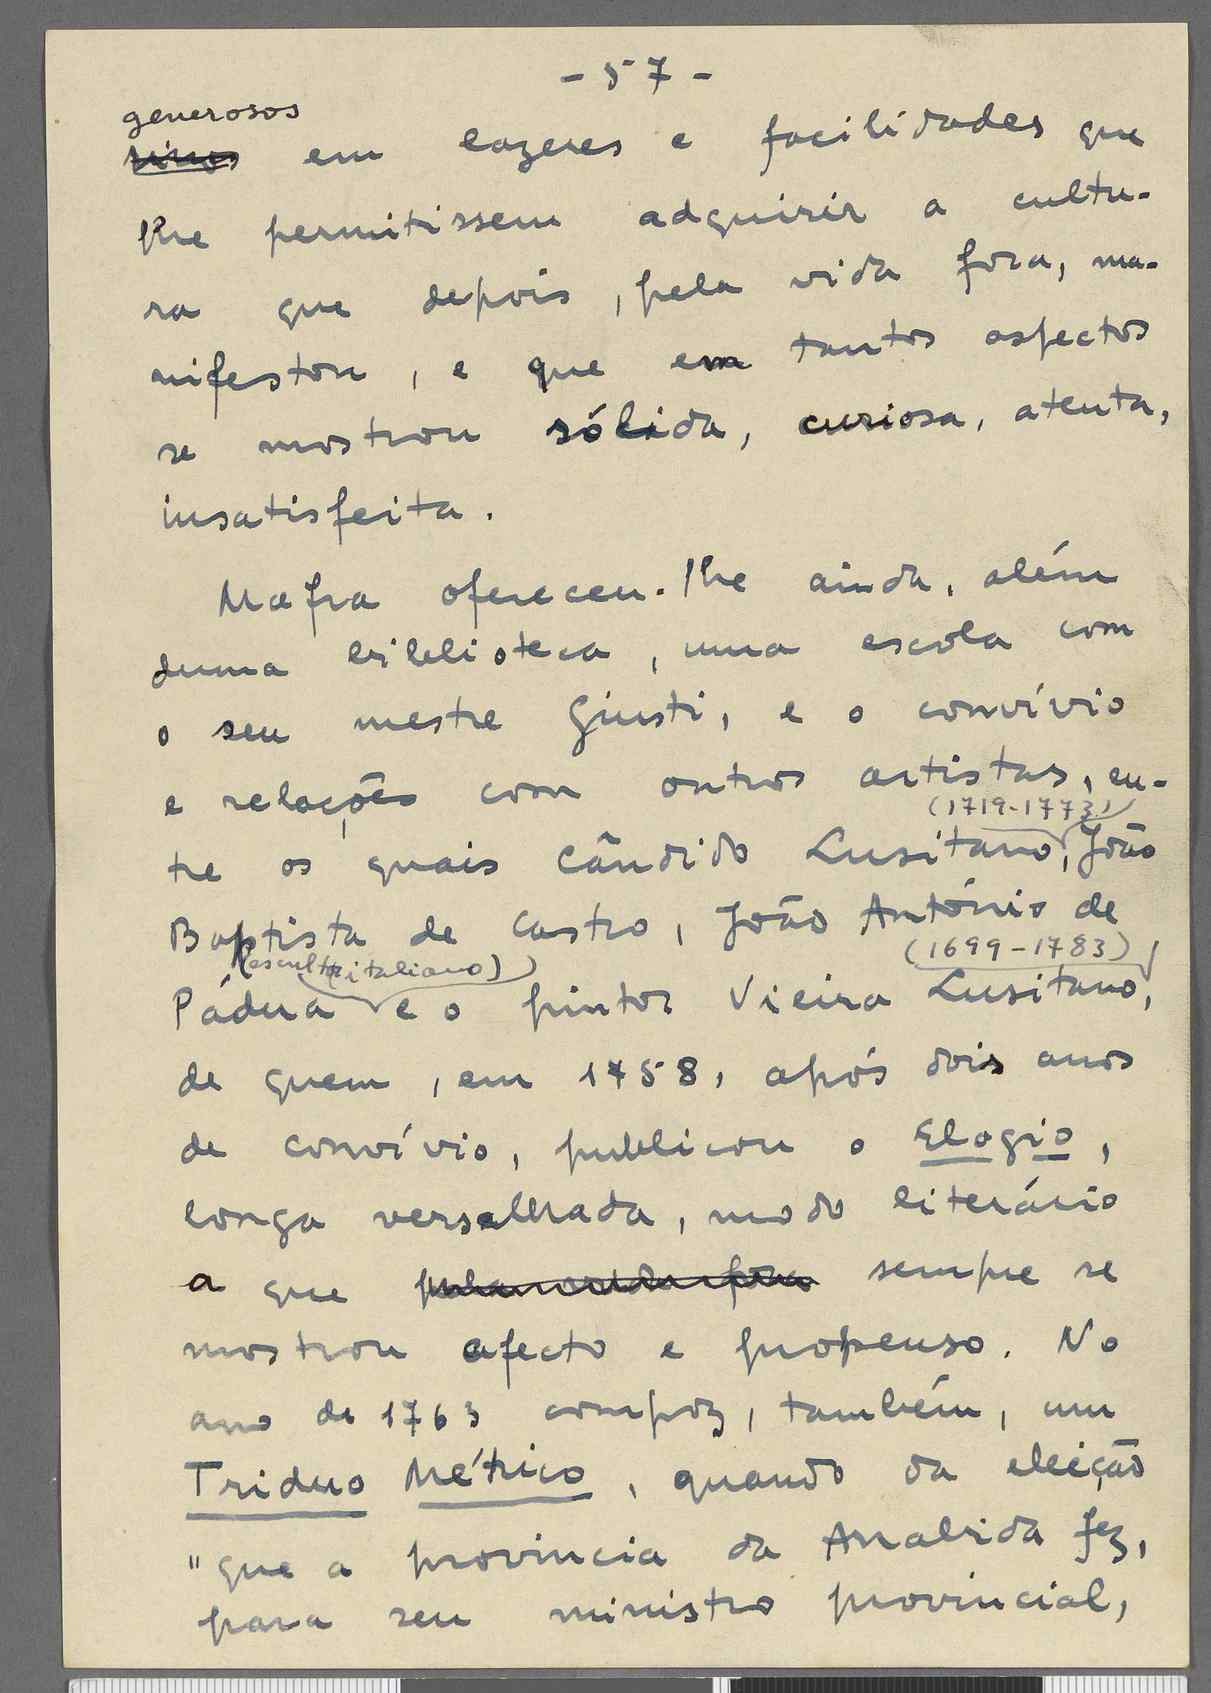 - 57 -
generosos
em lazeres e facilidades que
lhe permitissem adquirir a cultu-
ra que depois, pela vida fora, ma-
nifestou, e que em tantos aspectos
se mostrou sólida, curiosa, atenta,
insatisfeita.
Mafra ofereceu-lhe ainda, além
duma biblioteca, uma escola com
o seu mestre Giusti, e o convívio
e relações com outros artistas, en-
(1719-1773)
tre os quais Cândido Lusitano, João
Baptista de Castro, João António de
(escultor italiano) (1699-1783)
Pádua e o pintor Vieira Lusitano,
de quem, em 1758, após dois anos
de convívio, publicou o Elogio,
longa versalhada, modo literário
a que pela vida fora sempre se
mostrou afecto e propenso. No
ano de 1763 compoz, também, um
Triduo Métrico, quando da eleição
"que a provincia da Arrabida fez,
para seu ministro provincial,